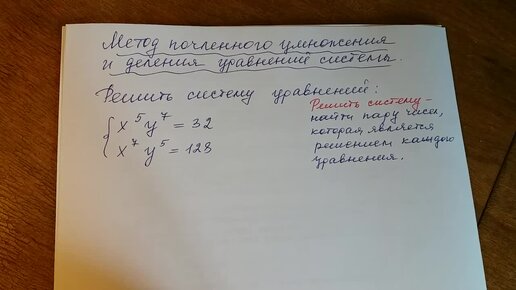 Метод почленного умножения
и деления уравнений системы.
Решить систему уравнений:
{ x⁵y⁷ = 32
x⁷y⁵ = 128
Решить систему –
найти пару чисел,
которая является
решением каждого
уравнения.